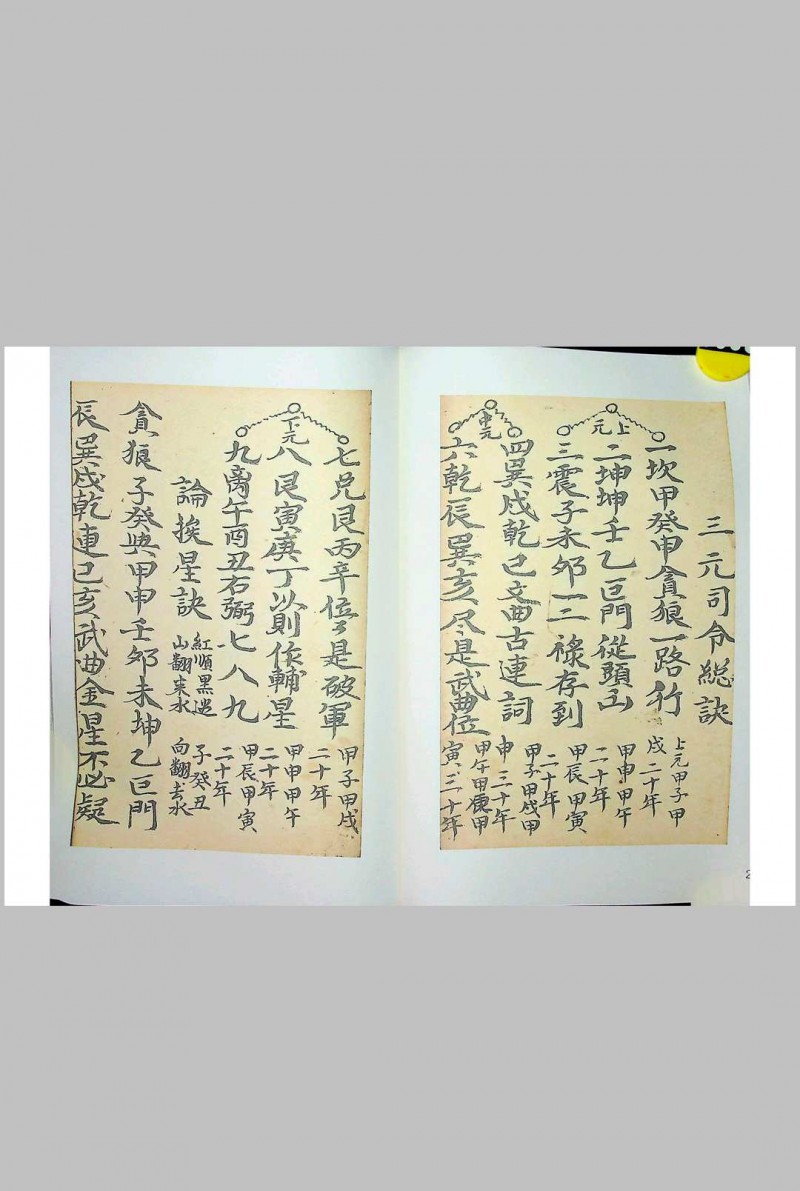 三元司令总訣
上元
一坎甲癸申貪狼一路行
上元甲子甲
戌二十年
二坤坤壬乙巨門從頭出
甲申甲午
二十年
三震子未卯一二祿存到
甲辰甲寅
二十年
中元
四巽戌乾已文曲古連詞
甲子甲戌甲
申三十年
六乾辰巽亥尽是武曲位
甲午甲甲
寅三十年
下元
七兑艮丙辛位々是破軍
甲子甲戌
二十年
八艮寅庚丁以則作輔星
甲申甲午
二十年
九离午酉丑右弼七八九
甲辰甲寅
二十年
論挨星訣
紅順黑逆
山翻来水
子癸丑
向翻去水
貪狼子癸與甲申壬卯未坤乙巨門
辰巽戌乾連已亥武曲金星不必疑
2